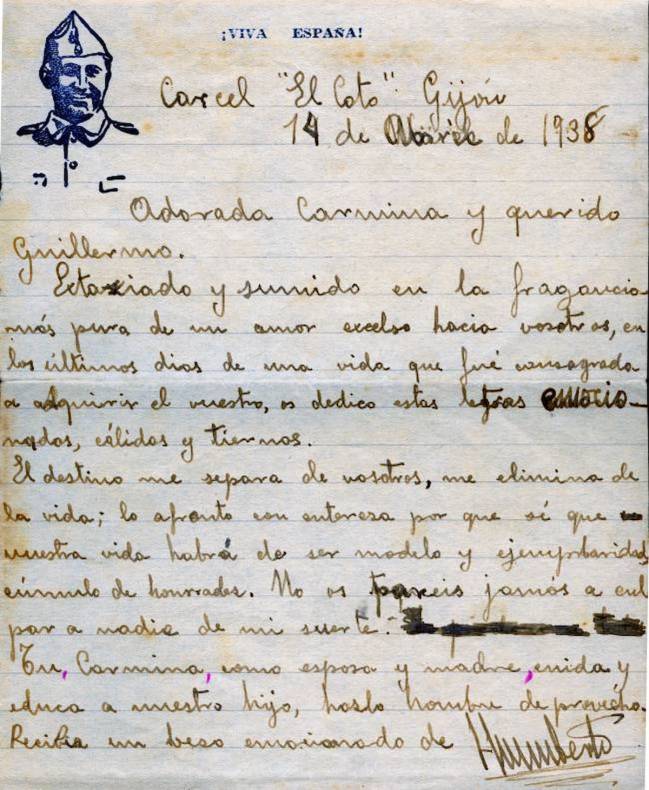 ¡VIVA ESPAÑA!
Carcel "El Coto" Gijón
14 de de 1938
Adorada Carmina y querido
Guillermo.
Extasiado y sumido en la fragancia
más pura de un amor excelso hacia vosotros, en
los últimos dias de una vida que fué consagrada
a adquirir el vuestro, os dedico estas letras emocio-
nadas, cálidas y tiernas.
El destino me separa de vosotros, me elimina de
la vida; lo afronto con entereza por que sé que
vuestra vida habrá de ser modelo y ejemplaridad,
cúmulo de honrrades. No os pareis jamás a cul
par a nadie de mi suerte.
Tu, Carmina, como esposa y madre, cuida y
educa a nuestro hijo, haslo hombre de provecho.
Recibia un beso emocionado de Humberto